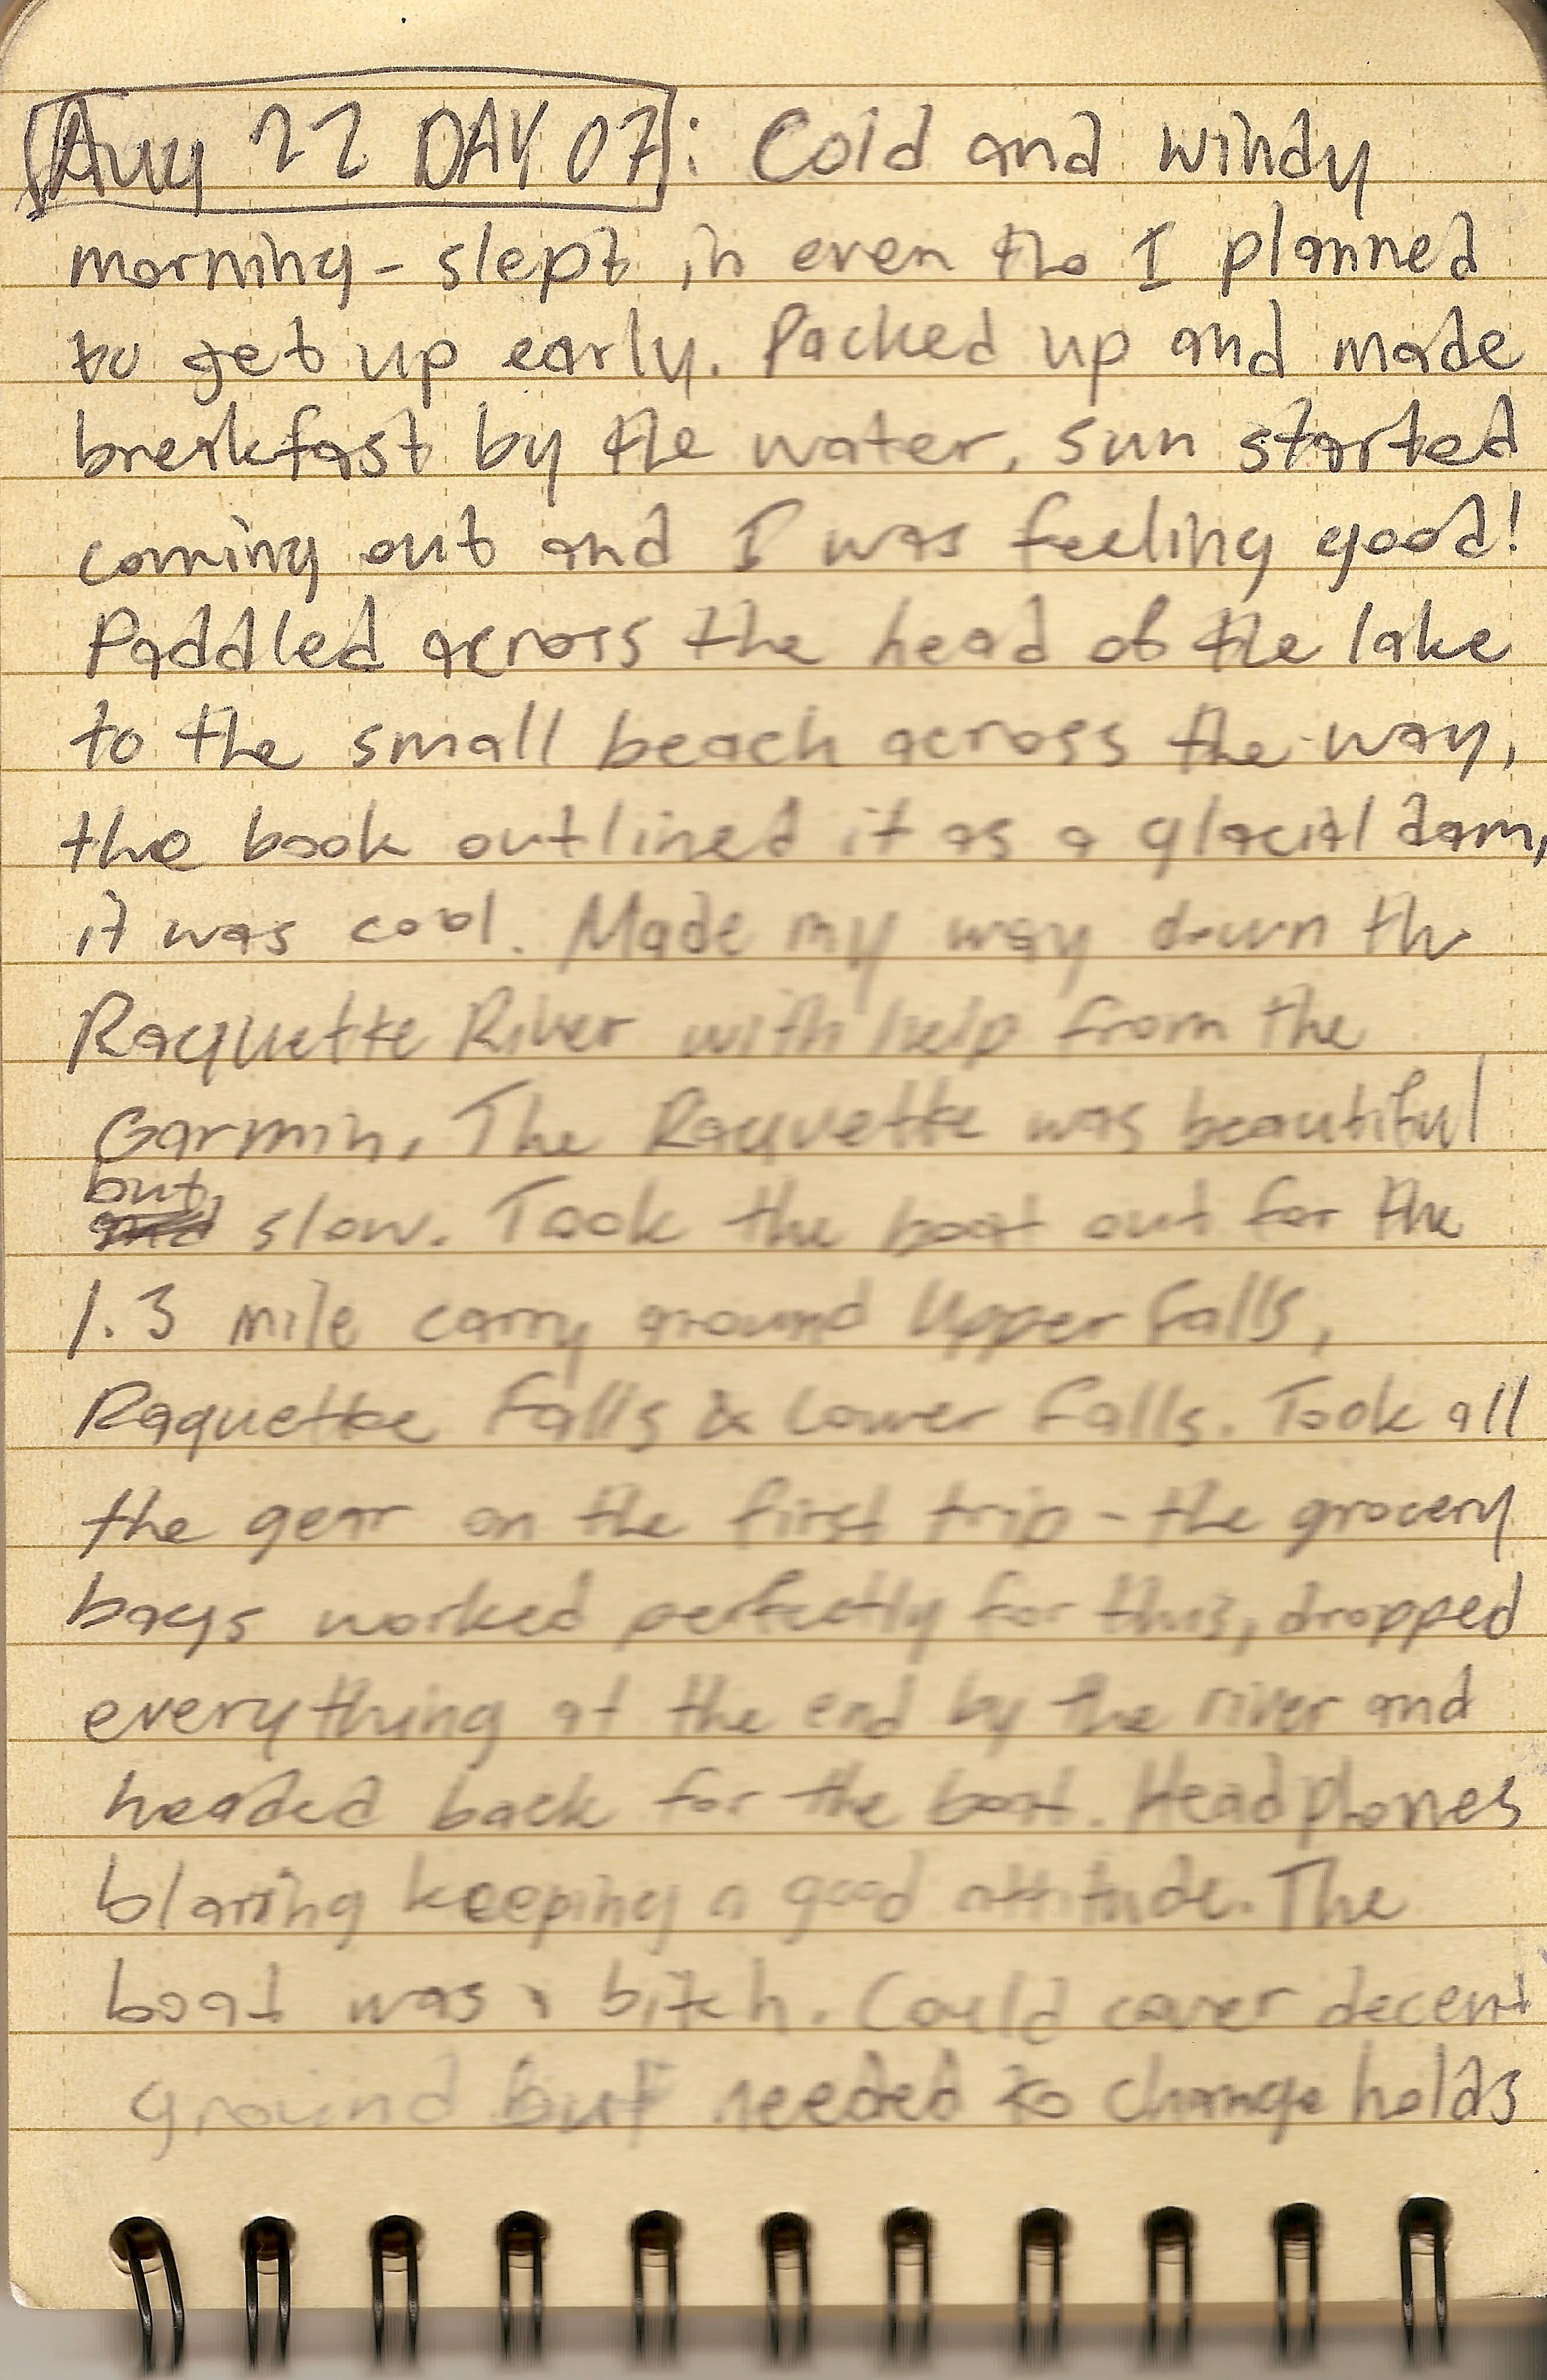 Aug 22 DAY 07: Cold and windy
morning - slept in even tho I planned
to get up early. Packed up and made
breakfast by the water, sun started
coming out and I was feeling good!
Paddled across the head of the lake
to the small beach across the way,
the book outlined it as a glacial dam,
it was cool. Made my way down the
Raquette River with help from the
Garmin. The Raquette was beautiful
but
and slow. Took the boat out for the
1.3 mile carry around Upper Falls,
Raquette Falls & Lower Falls. Took all
the gear on the first trip - the grocery
bags worked perfectly for this, dropped
everything at the end by the river and
headed back for the boat. Headphones
blaring keeping a good attitude. The
boat was a bitch. Could cover decent
ground but needed to change holds